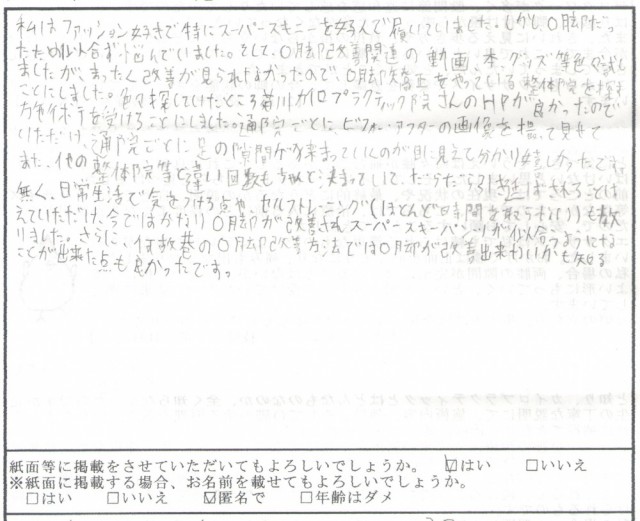 私はファッション好きで特にスーパースキニーを好んで履いていました。しかし、O脚だっ
たため似合わず悩んでいました。そして、O脚改善関連の動画、本、グッズ等色々試し
ましたが、まったく改善が見られなかったので、O脚矯正をやっている整体院を探す
ことにしました。色々探していたところ菊川カイロプラクティック院さんのHPが良かったので
を受けることにしました。通院ごとにビフォー・アフターの画像を撮って見せて
いただけ、通院ごとに足の隙間が狭まっていくのが目に見えて分かり嬉しかったです。
また、他の整体院等と違い回数もちゃんと決まっていて、だらだら引き延ばされることは
無く、日常生活で気をつける点や、セルフトレーニング(ほとんど時間を取られない)も教
えていただけ、今ではかなりO脚が改善されスーパースキーパンツが似合うようにな
りました。さらに、何故巷のO脚改善方法ではO脚が改善出来ないかも知る
ことが出来た点も良かったです。
紙面等に掲載をさせていただいてもよろしいでしょうか。 ☑はい □いいえ
※紙面に掲載する場合、お名前を載せてもよろしいでしょうか。
□はい □いいえ ☑匿名で □年齢はダメ